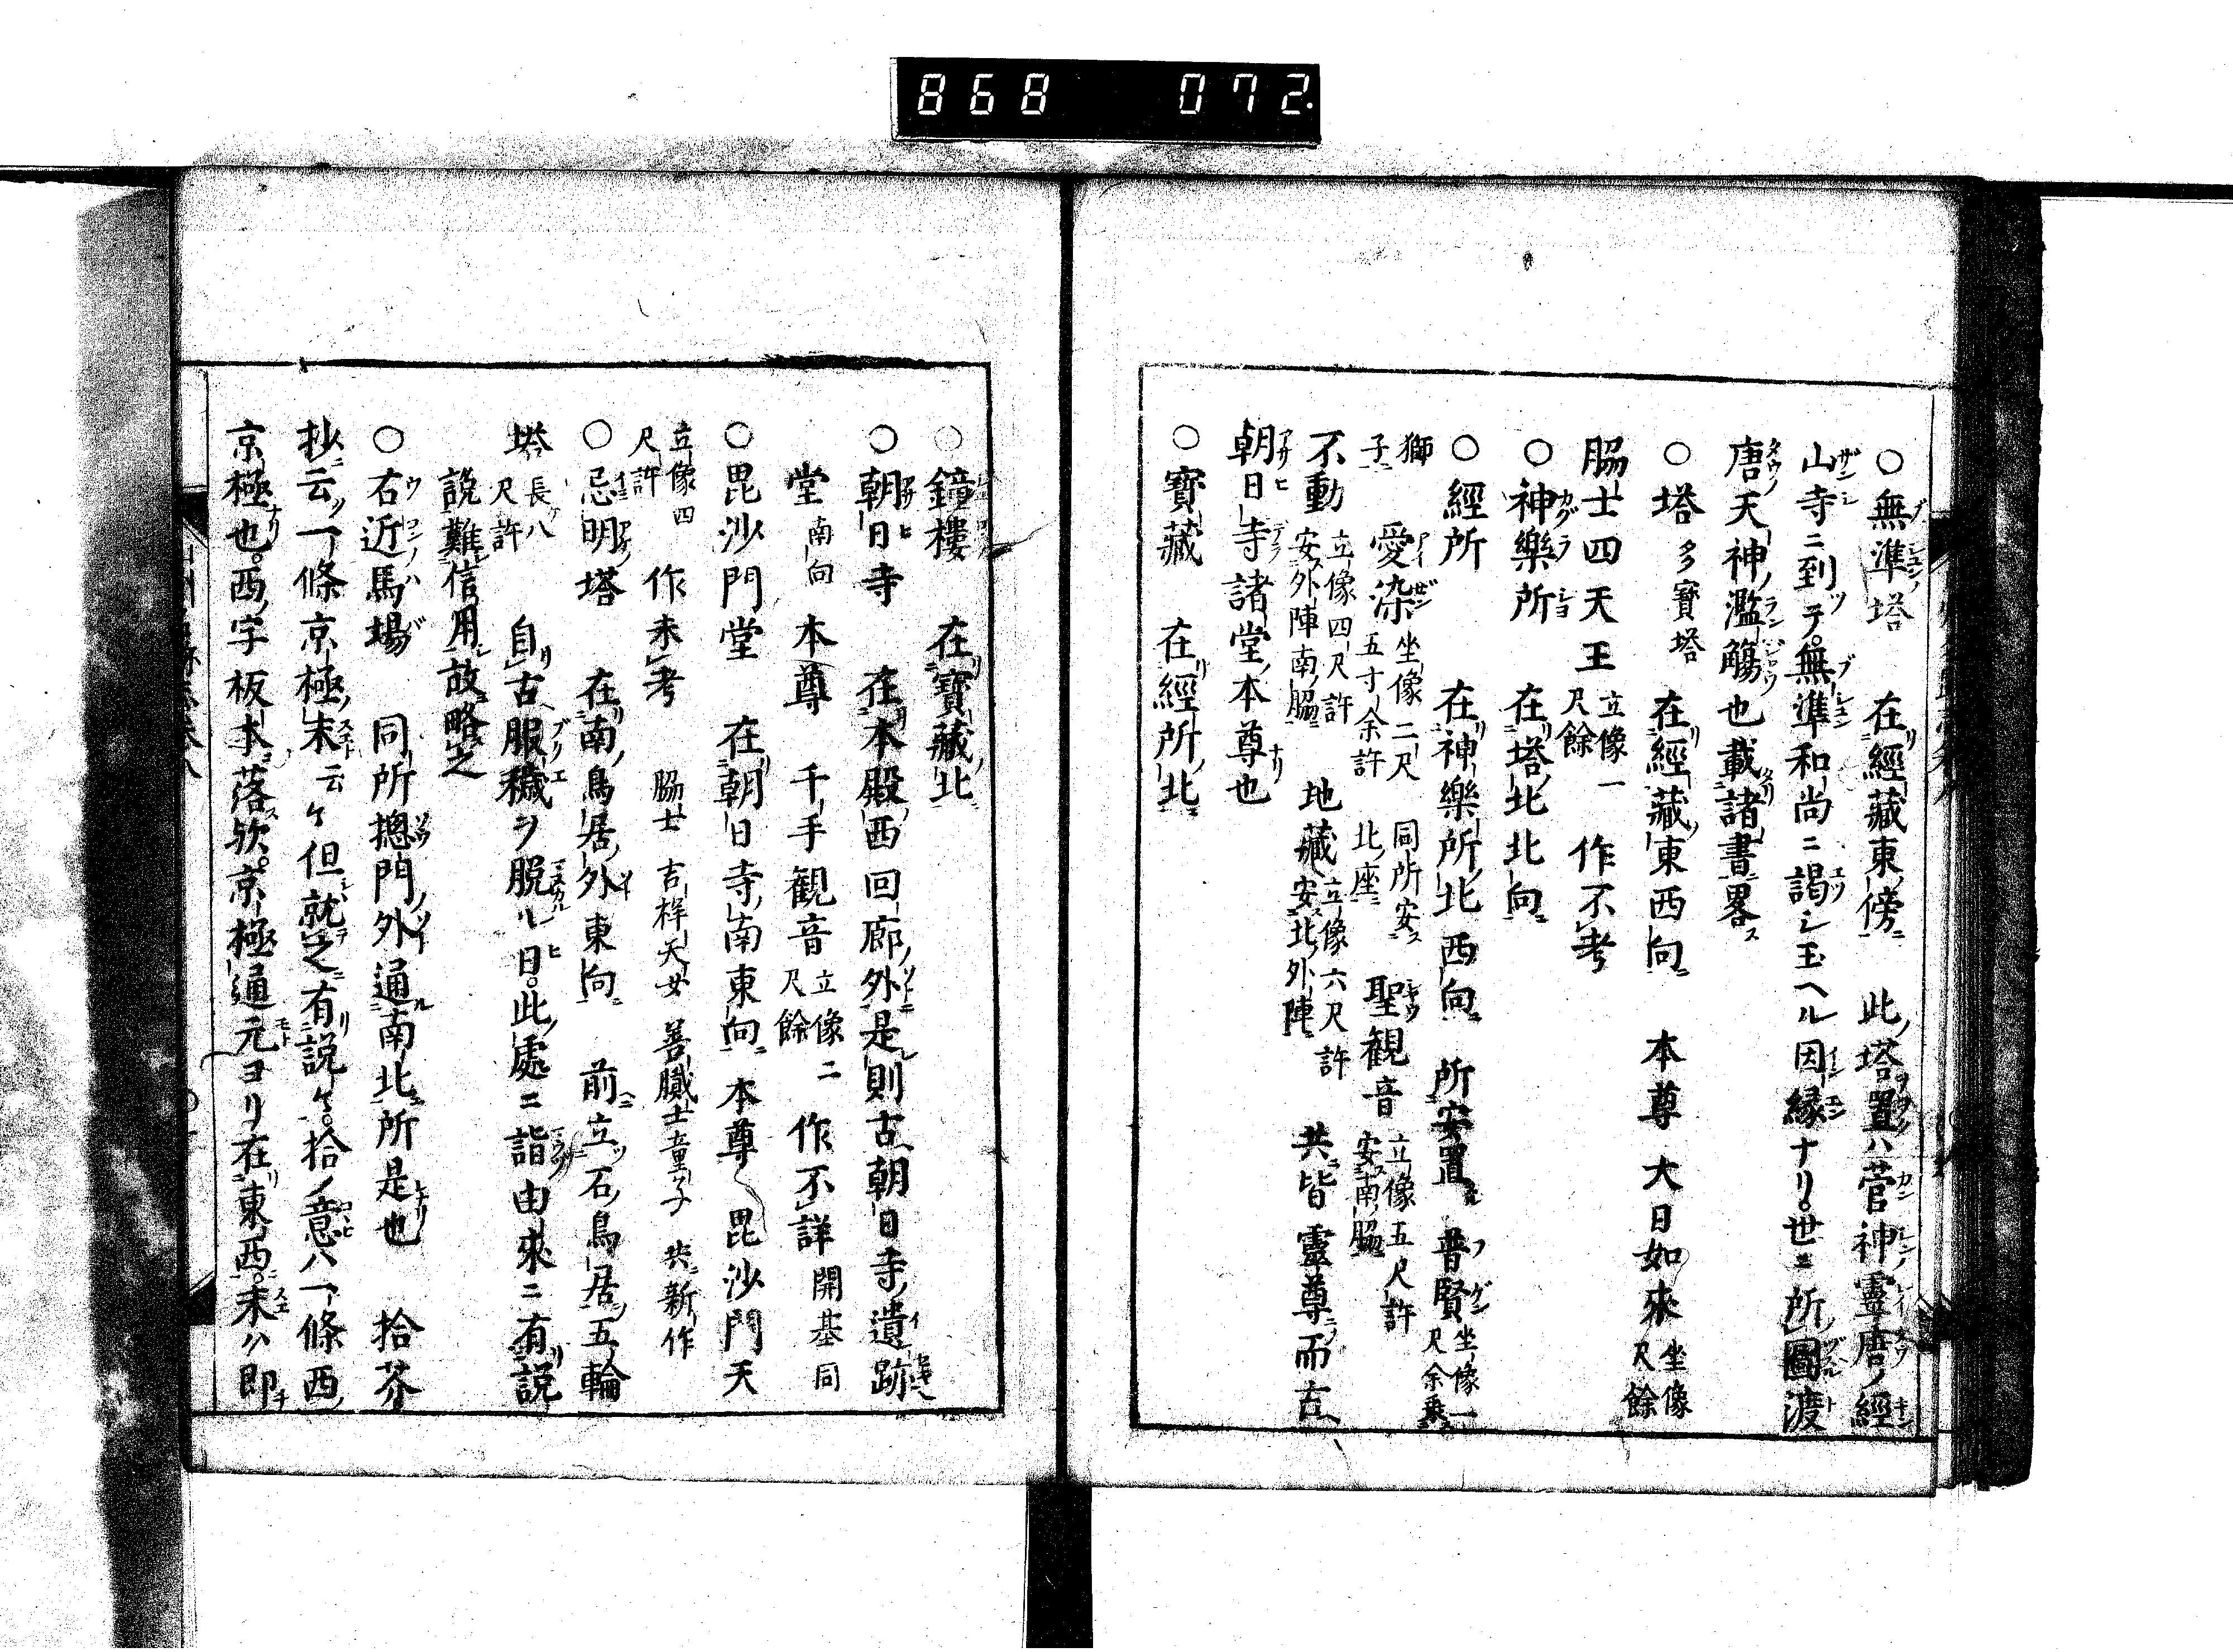 868 072
○無準塔 在經藏東傍 此塔置ハ菅神靈唐ノ經
山寺ニ到テ。無準和尚ニ謁シ玉ヘル因縁ナリ。世ニ所圖渡
唐天神ノ濫觴也載諸書畧ス
○塔 多寶塔 在經藏東西向 本尊 大日如來 坐像尺餘
脇士四天王 立像一尺餘 作不考
○神樂所 在塔北北向
○經所 在神樂所北西向 所安置 普賢 坐像一尺余乘
獅子 愛染 坐像二尺五寸余許 同所安北座 聖観音 立像五尺許安南脇
不動 立像四尺許安外陣南脇 地藏 立像六尺許安北外陣 共皆靈尊而古
朝日寺諸堂本尊也
○寶藏 在經所北
○鐘樓 在寶藏北
○朝日寺 在本殿西回廊外是則古朝日寺遺跡
堂 南向 本尊 千手観音 立像二尺餘 作不詳 開基同
○毘沙門堂 在朝日寺南東向 本尊 毘沙門天
立像四尺許 作未考 脇士 吉祥天女 善膩士童子 共新作
○忌明塔 在南鳥居外東向 前立石鳥居五輪
塔 長八尺許 自古服穢ヲ脱ルヽ日。此處ニ詣由來ニ有説
説難信用故略之
○右近馬場 同所摠門外通南北所是也 拾芥
抄云一條京極末云々但就之有説々。拾ノ意ハ一條西
京極也。西字板本落欤。京極通元ヨリ在東西。末ハ即